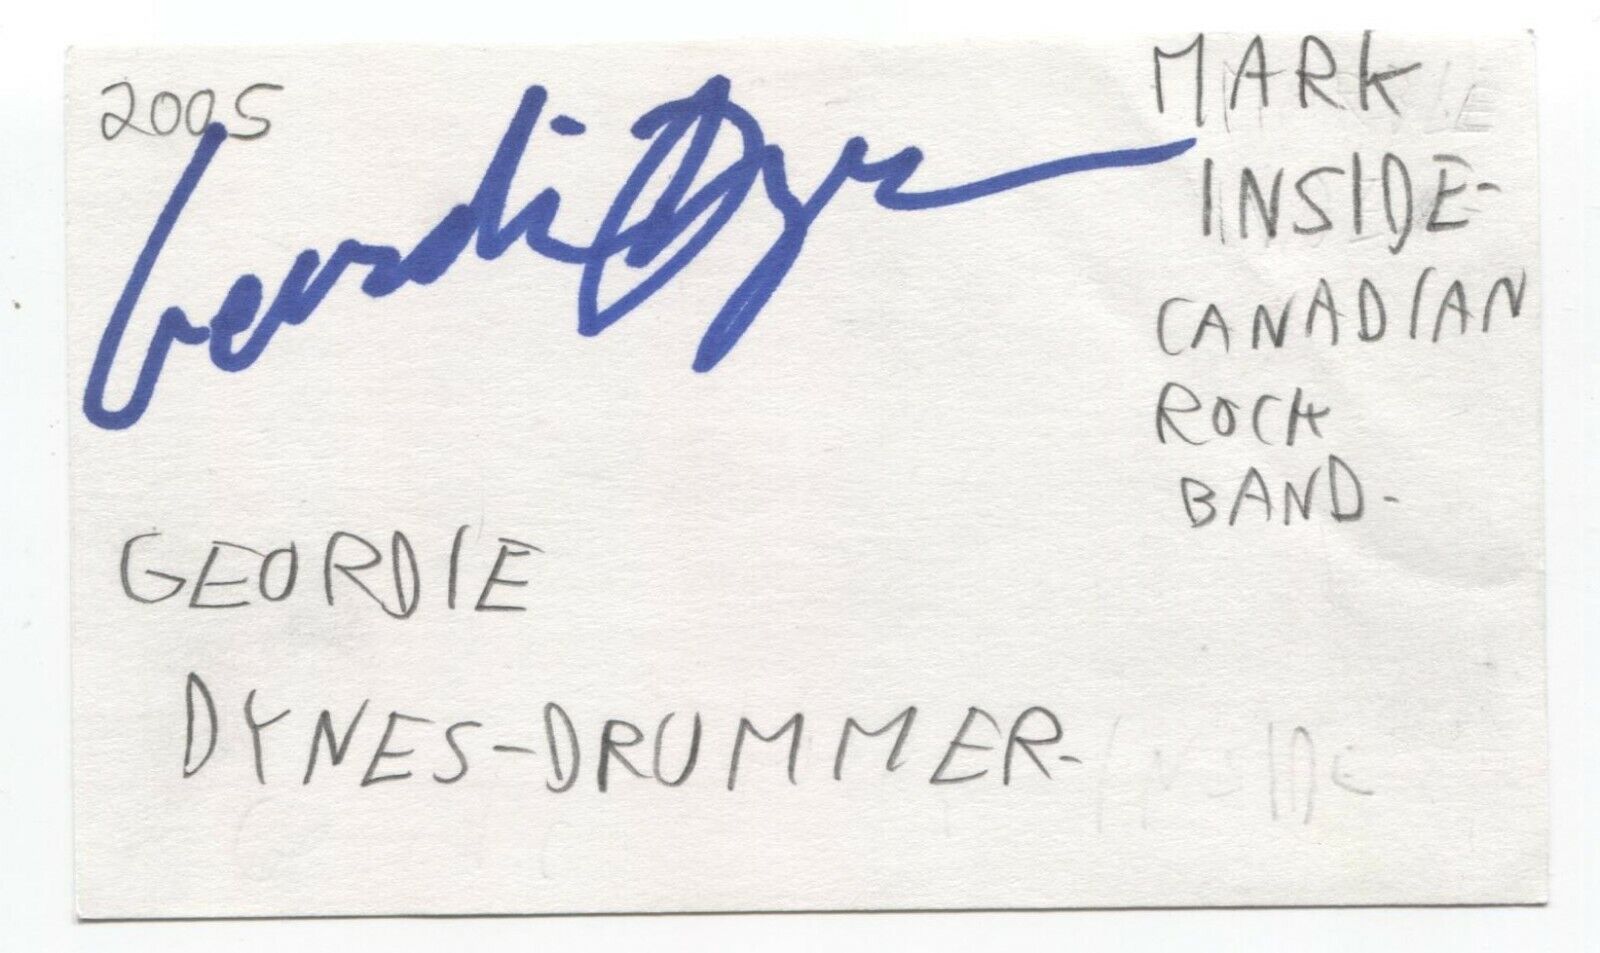 2005
Geordie Dynes
MARK
INSIDE-
CANADIAN
ROCK
BAND-
GEORDIE
DYNES-DRUMMER-